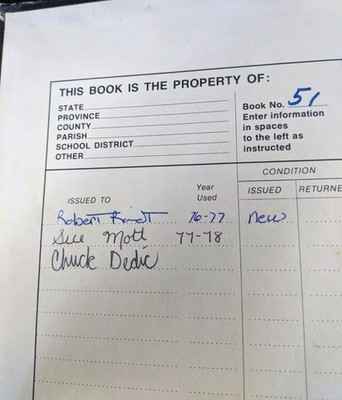 THIS BOOK IS THE PROPERTY OF:
STATE
PROVINCE
COUNTY
PARISH
SCHOOL DISTRICT
OTHER
Book No. 51
Enter information
in spaces
to the left as
instructed
CONDITION
ISSUED TO
Year
Used
ISSUED
RETURNE
Robert 76-77 new
Sue Mott 77-78
Chuck Dedic